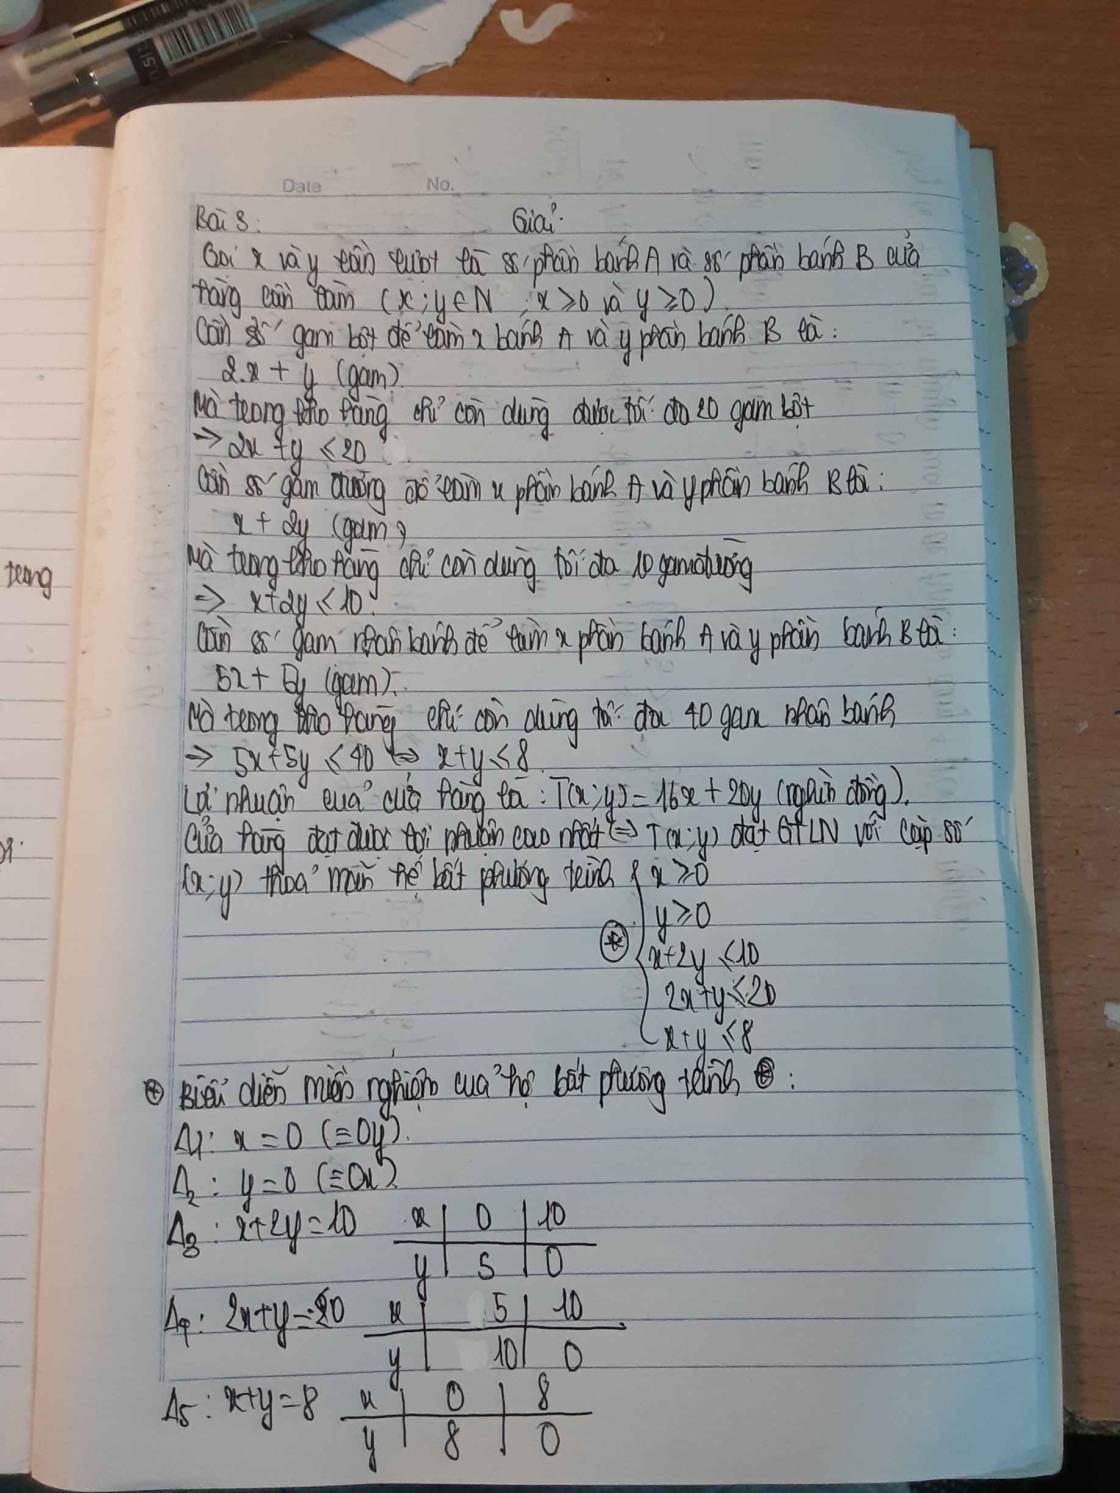 Date No.
Bài 3: Giải:
Gọi x và y lần lượt là số phần bánh A và số phần bánh B cửa
hàng cần làm (x;y∈N ; x≥0 và y≥0)
Cần số gam bột để làm x bánh A và y phần bánh B là:
2.x + y (gam)
Mà trong kho hàng chỉ còn dùng được tối đa 20 gam bột
⇒ 2x+y ≤ 20
Cần số gam đường để làm x phần bánh A và y phần bánh B là:
x + 2y (gam)
Mà trong kho hàng chỉ còn dùng tối đa 10 gam đường
⇒ x+2y ≤ 10
Cần số gam nhân bánh để làm x phần bánh A và y phần bánh B là:
5x + 5y (gam).
Mà trong kho hàng chỉ còn dùng tối đa 40 gam nhân bánh
⇒ 5x+5y ≤ 40 ⇔ x+y ≤ 8
Lợi nhuận của cửa hàng là: T(x;y) = 16x + 20y (nghìn đồng).
Cửa hàng đạt được lợi nhuận cao nhất ⇔ T(x;y) đạt GTLN với cặp số
(x;y) thoả mãn hệ bất phương trình { x ≥ 0
y ≥ 0
x+2y ≤ 10
2x+y ≤ 20
x+y ≤ 8
Biểu diễn miền nghiệm của hệ bất phương trình :
Δ1: x = 0 (≡Oy).
Δ2: y = 0 (≡Ox)
Δ3: x+2y = 10 x 0 10
y 5 0
Δ4: 2x+y = 20 x 5 10
y 10 0
Δ5: x+y = 8 x 0 8
y 8 0
trong